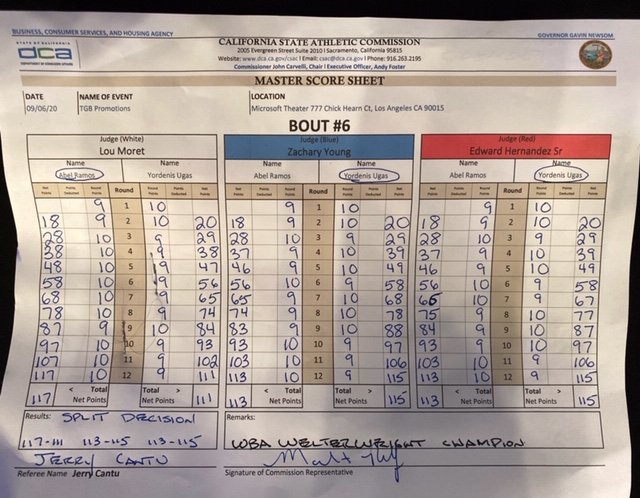 BUSINESS, CONSUMER SERVICES, AND HOUSING AGENCY GOVERNOR GAVIN NEWSOM
STATE OF CALIFORNIA
dca
DEPARTMENT OF CONSUMER AFFAIRS
CALIFORNIA STATE ATHLETIC COMMISSION
2005 Evergreen Street Suite 2010 | Sacramento, California 95815
Website: www.dca.ca.gov/csac | Email: csac@dca.ca.gov | Phone: 916.263.2195
Commissioner John Carvelli, Chair | Executive Officer, Andy Foster
MASTER SCORE SHEET
DATE NAME OF EVENT LOCATION
09/06/20 TGB Promotions Microsoft Theater 777 Chick Hearn Ct, Los Angeles CA 90015
BOUT #6
Judge (White) Judge (Blue) Judge (Red)
Lou Moret Zachary Young Edward Hernandez Sr
Name Name Name Name Name Name
Abel Ramos Yordenis Ugas Abel Ramos Yordenis Ugas Abel Ramos Yordenis Ugas
Net Points Points Deducted Round Points Round Round Points Points Deducted Net Points Net Points Points Deducted Round Points Round Round Points Points Deducted Net Points Net Points Points Deducted Round Points Round Round Points Points Deducted Net Points
9 1 10 9 1 10 9 1 10
18 9 2 10 20 18 9 2 10 20 18 9 2 10 20
28 10 3 9 29 28 10 3 9 29 28 10 3 9 29
38 10 4 9 38 37 9 4 10 39 37 9 4 10 39
48 10 5 9 47 46 9 5 10 49 46 9 5 10 49
58 10 6 9 56 56 10 6 9 58 56 10 6 9 58
68 10 7 9 65 65 9 7 10 68 65 10 7 9 67
78 10 8 9 74 74 9 8 10 78 75 9 8 10 77
87 9 9 10 84 83 9 9 10 88 84 9 9 10 87
97 10 10 9 93 93 10 10 9 97 93 9 10 10 97
107 10 11 9 102 103 10 11 9 106 103 10 11 9 106
117 10 12 9 111 113 10 12 9 115 113 10 12 9 115
117 < Total Net Points Total > Net Points 111 113 < Total Net Points Total > Net Points 115 113 < Total Net Points Total > Net Points 115
Results: SPLIT DECISION Remarks:
117-111 113-115 113-115 WBA WELTERWEIGHT CHAMPION
JERRY CANTU
Referee Name Jerry Cantu Signature of Commission Representative